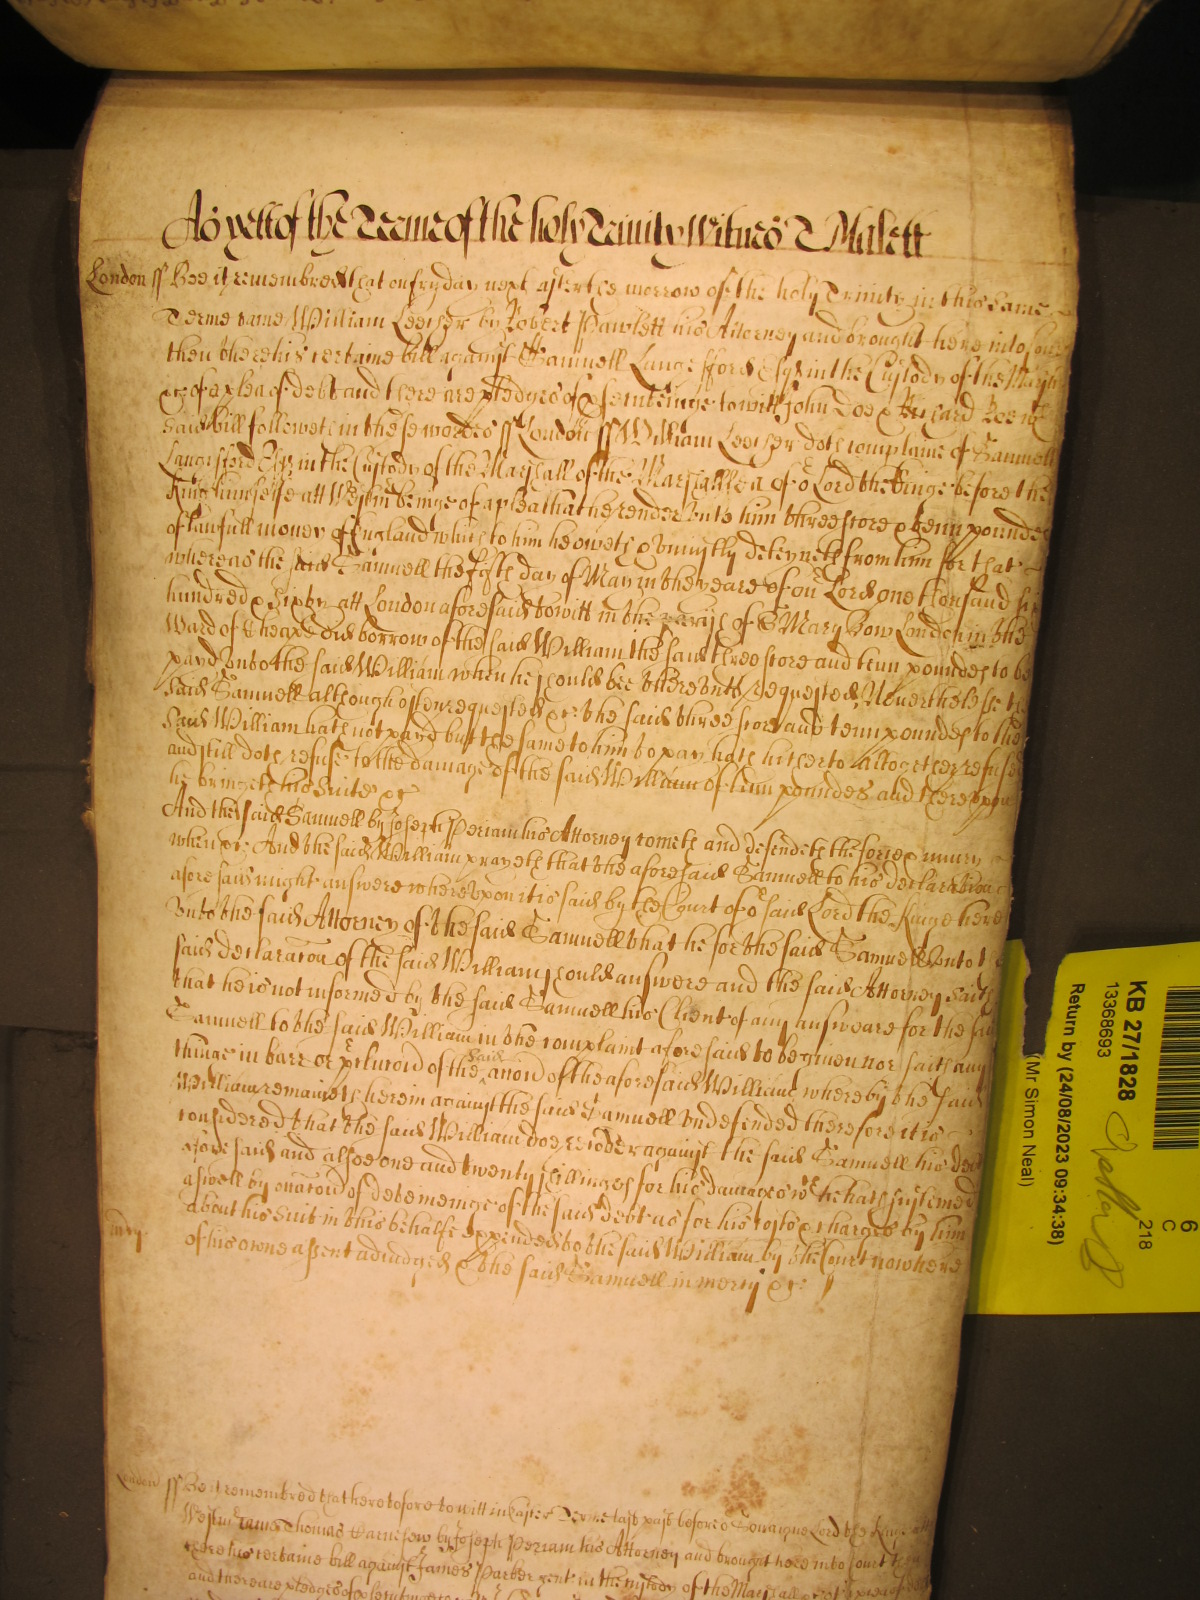 As yett of the Terme of the holy Trinity Witnes T Malett
London ss Bee it remembred that on fryday next after the morrow of the holy Trinity in this same
Terme came William Leecher by Robert Pawlett his Attorney and brought here into Court
then there his certaine bill against Samuell Langesford Esqr in the Custody of the Marsh
&c of a plea of debt and there are pledges of prosecutinge to witt John Doe & Richard Roe wch
said bill followeth in these wordes ss London ss William Leecher doth complaine of Samuell
Langesford Esqr in the Custody of the Marshall of the Marshallsea of or Lord the Kinge before the
King himselfe att Westmr beinge of a plea that he render unto him three score & tenn poundes
of lawfull money of England which to him he oweth & uniustly deteyneth from him for that
whereas the said Samuell the fifth day of May in the yeare of our Lord one thousand six
hundred & sixty att London aforesaid to witt in the parish of St Mary Bow London in the
Ward of Cheape did borrow of the said William the said three score and tenn poundes to be
payd unto the said William when he should bee thereunto requested Neverthelesse the
said Samuell although often requested &c the said three score and tenn poundes to the
said William hath not payd but the same to him to pay hath hitherto alltogether refused
and still doth refuse to the damage of the said William of tenn poundes and thereupon
he bringeth his suite &c
And the said Samuell by Joseph Periam his Attorney cometh and defendeth the force & iniury
when &c And the said William prayeth that the aforesaid Samuell to his declaration
aforesaid might answere whereupon it is said by the Court of or said Lord the Kinge here
unto the said Attorney of the said Samuell that he for the said Samuell unto the
said declaracon of the said William should answere and the said Attorney saith
that he is not informed by the said Samuell his Client of any answeare for the said
Samuell to the said William in the complaint aforesaid to be given nor saith any
thinge in barr or preclucion of the said accion of the aforesaid William whereby the said
William remaineth herein against the said Samuell undefended therefore it is
considered that the said William doe recover against the said Samuell his debt
aforesaid and alsoe one and twenty shillinges for his damages wch he hath susteined
aswell by occacion of deteininge of the said debt as for his costs & charges by him
about his suit in this behalfe expended to the said William by the Court now here
mercy
of his owne assent adiudged & the said Samuell in mercy &c
London ss Be it remembred that heretofore to witt in Easter Terme last past before or Soveraigne Lord the Kinge att
Westmr came Thomas by Joseph Periam his Attorney and brought here into Court then
there his certaine bill against James Parker gent in the custody of the Marshall &c of a plea of
and there are pledges of prosecutinge to
KB 27/1828
13368693
Return by (24/08/2023 09:34:38)
(Mr Simon Neal)
6
C
218